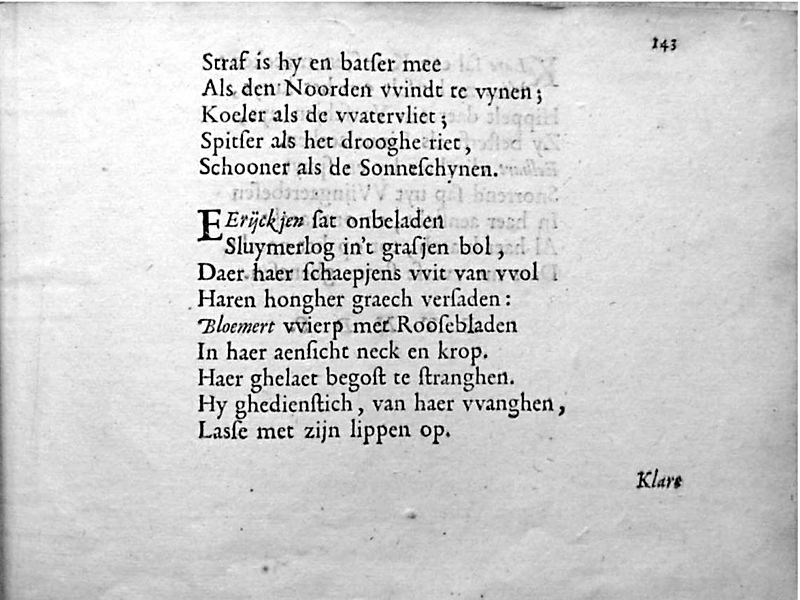 143
Straf is hy en batſer mee
Als den Noorden vvindt te vynen;
Koeler als de vvatervliet;
Spitſer als het drooghe riet,
Schooner als de Sonneſchynen.
EErijckjen ſat onbeladen
Sluymerlog in't graſjen bol,
Daer haer ſchaepjens vvit van vvol
Haren hongher graech verſaden:
Bloemert vvierp met Rooſebladen
In haer aenſicht neck en krop.
Haer ghelaet begoſt te ſtranghen.
Hy ghedienſtich, van haer vvanghen,
Laſſe met zijn lippen op.
Klare